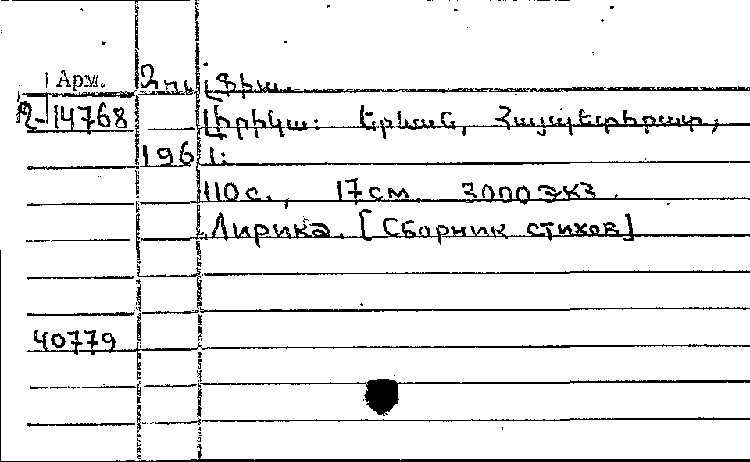 Арм. Զուլֆիա.
Զ-14768 Լիրիկա: Երևան, Հայպետհրատ,
1961:
110с., 17см. 3000экз.
Лирика. [Сборник стихов]
40779